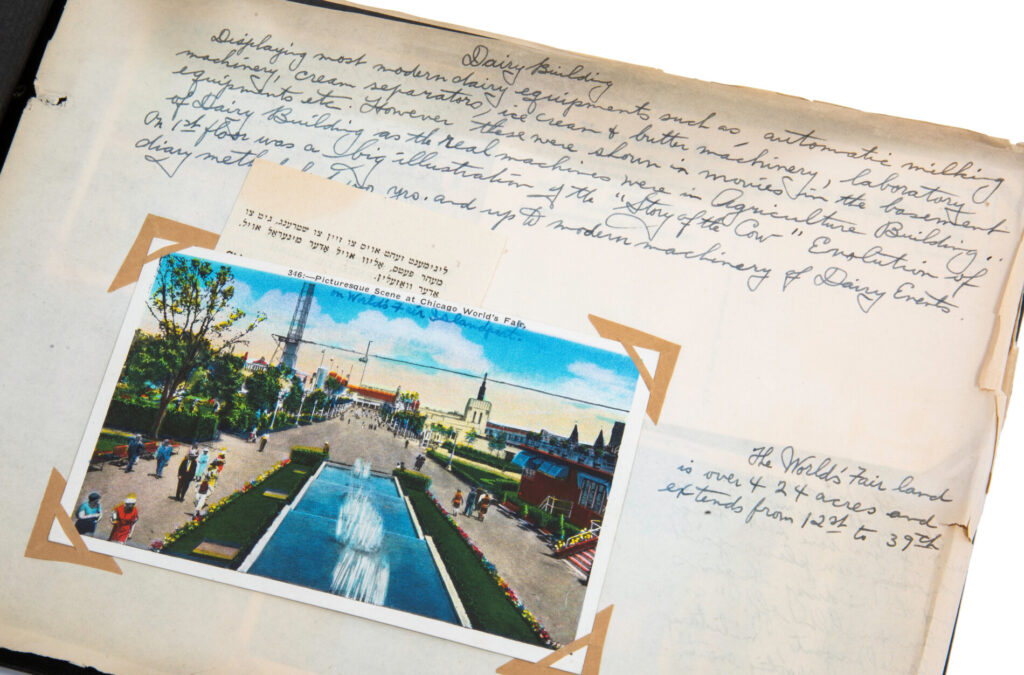 Dairy Building
Displaying most modern dairy equipments such as, automatic milking
machinery, cream separators, ice cream & butter machinery, laboratory
equipments etc. However these were shown in movies in the basement
of Dairy Building as the real machines were in Agriculture Building.
On 1st floor was a big illustration of the "Story of the Cow" Evolution of
diary yrs. and up to modern machinery of Dairy Events.
לינימענט זעהט אויס צו זיין צו שטרענג, גיט צו
מעהר פעטס, אָליוו אויל אָדער מינעראל אויל,
אָדער וואַזעלין.
346:—Picturesque Scene at Chicago World's Fair,
on World's Fair Island
The World's Fair land
is over 424 acres and
extends from 12st to 39th